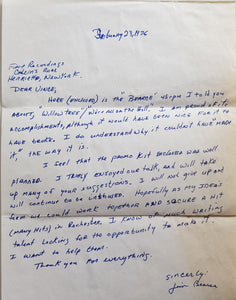 February 23, 1976
Fine Recordings
Calkins Road
Henrietta, New York.
Dear Vince,
Here (enclosed) is the "Bearce" 45rpm I told you
about, "Willow Tree"/ I am proud of its
accomplishments, although it would have been nice for it to
have broke. I do understand why it couldn't have "made
it," the way it is.
I feel that the promo kit enclosed was well
planned. I truly enjoyed our talk, and will take
up many of your suggestions. I will not give up and
will continue to be Hopefully as my ideas
form we could work together and secure a hit
(many hits) in Rochester. I know of much writing
talent looking for the opportunity to make it.
I want to help them.
Thank you for everything.
Sincerely:
Jim